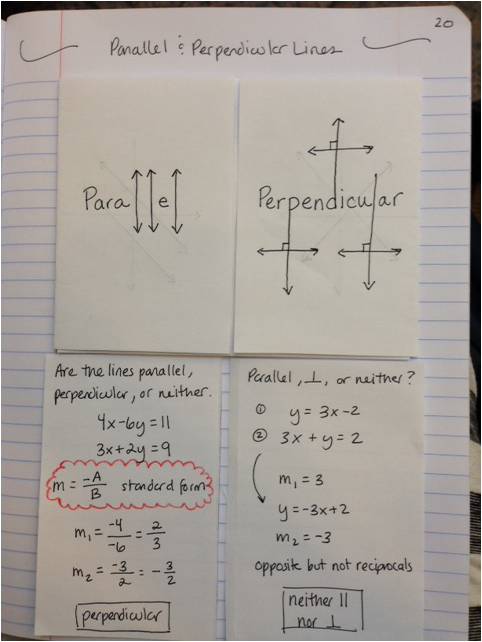 20
Parallel & Perpendicular Lines
Parallel
Perpendicular
Are the lines parallel,
perpendicular, or neither.
4x-6y=11
3x+2y=9
m = -A/B standard form
m₁ = -4/-6 = 2/3
m₂ = -3/2 = -3/2
perpendicular
Parallel, ⊥, or neither?
① y = 3x-2
② 3x + y = 2
m₁ = 3
y = -3x+2
m₂ = -3
opposite but not reciprocals
neither ||
nor ⊥